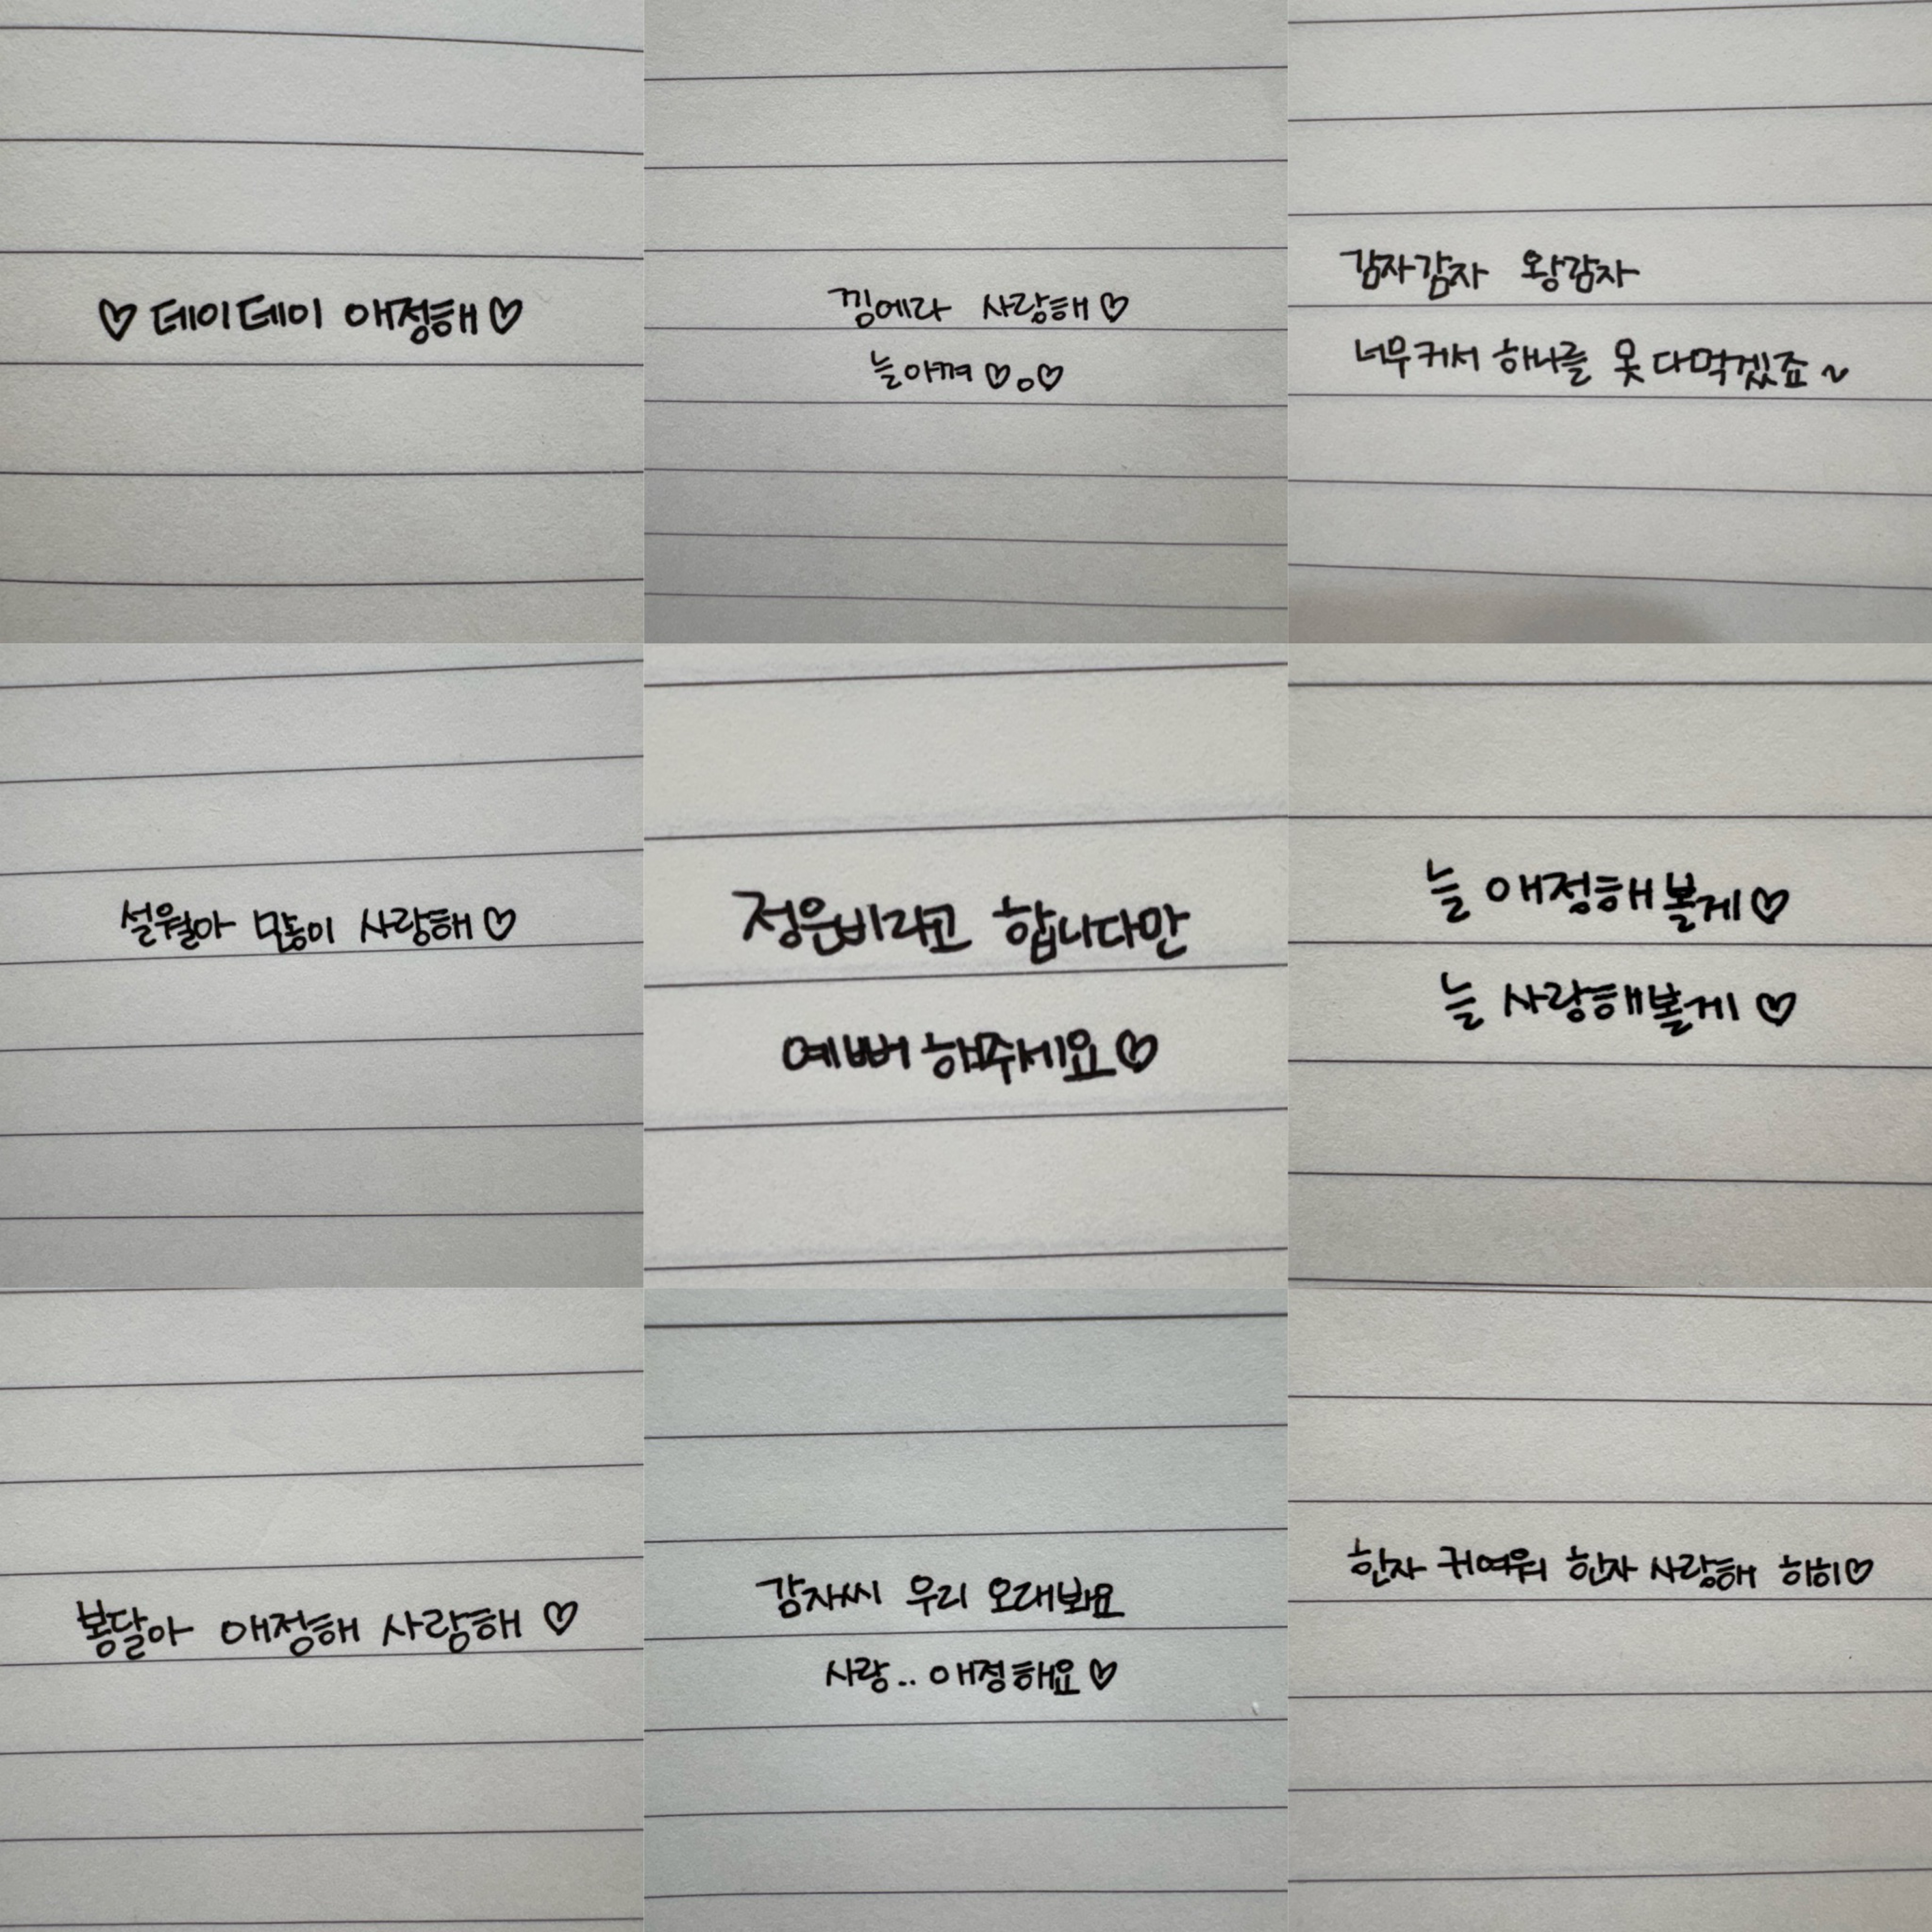 ♡ 데이데이 애정해 ♡
낑에라 사랑해 ♡
늘 아껴 ♡。♡
감자감자 왕감자
너무커서 하나를 못 다먹겠죠 ~
설월아 많이 사랑해 ♡
정은비라고 합니다만
예뻐 해주세요 ♡
늘 애정해볼게 ♡
늘 사랑해볼게 ♡
봉달아 애정해 사랑해 ♡
감자씨 우리 오래봐요
사랑.. 애정해요 ♡
한자 귀여워 한자 사랑해 히히♡